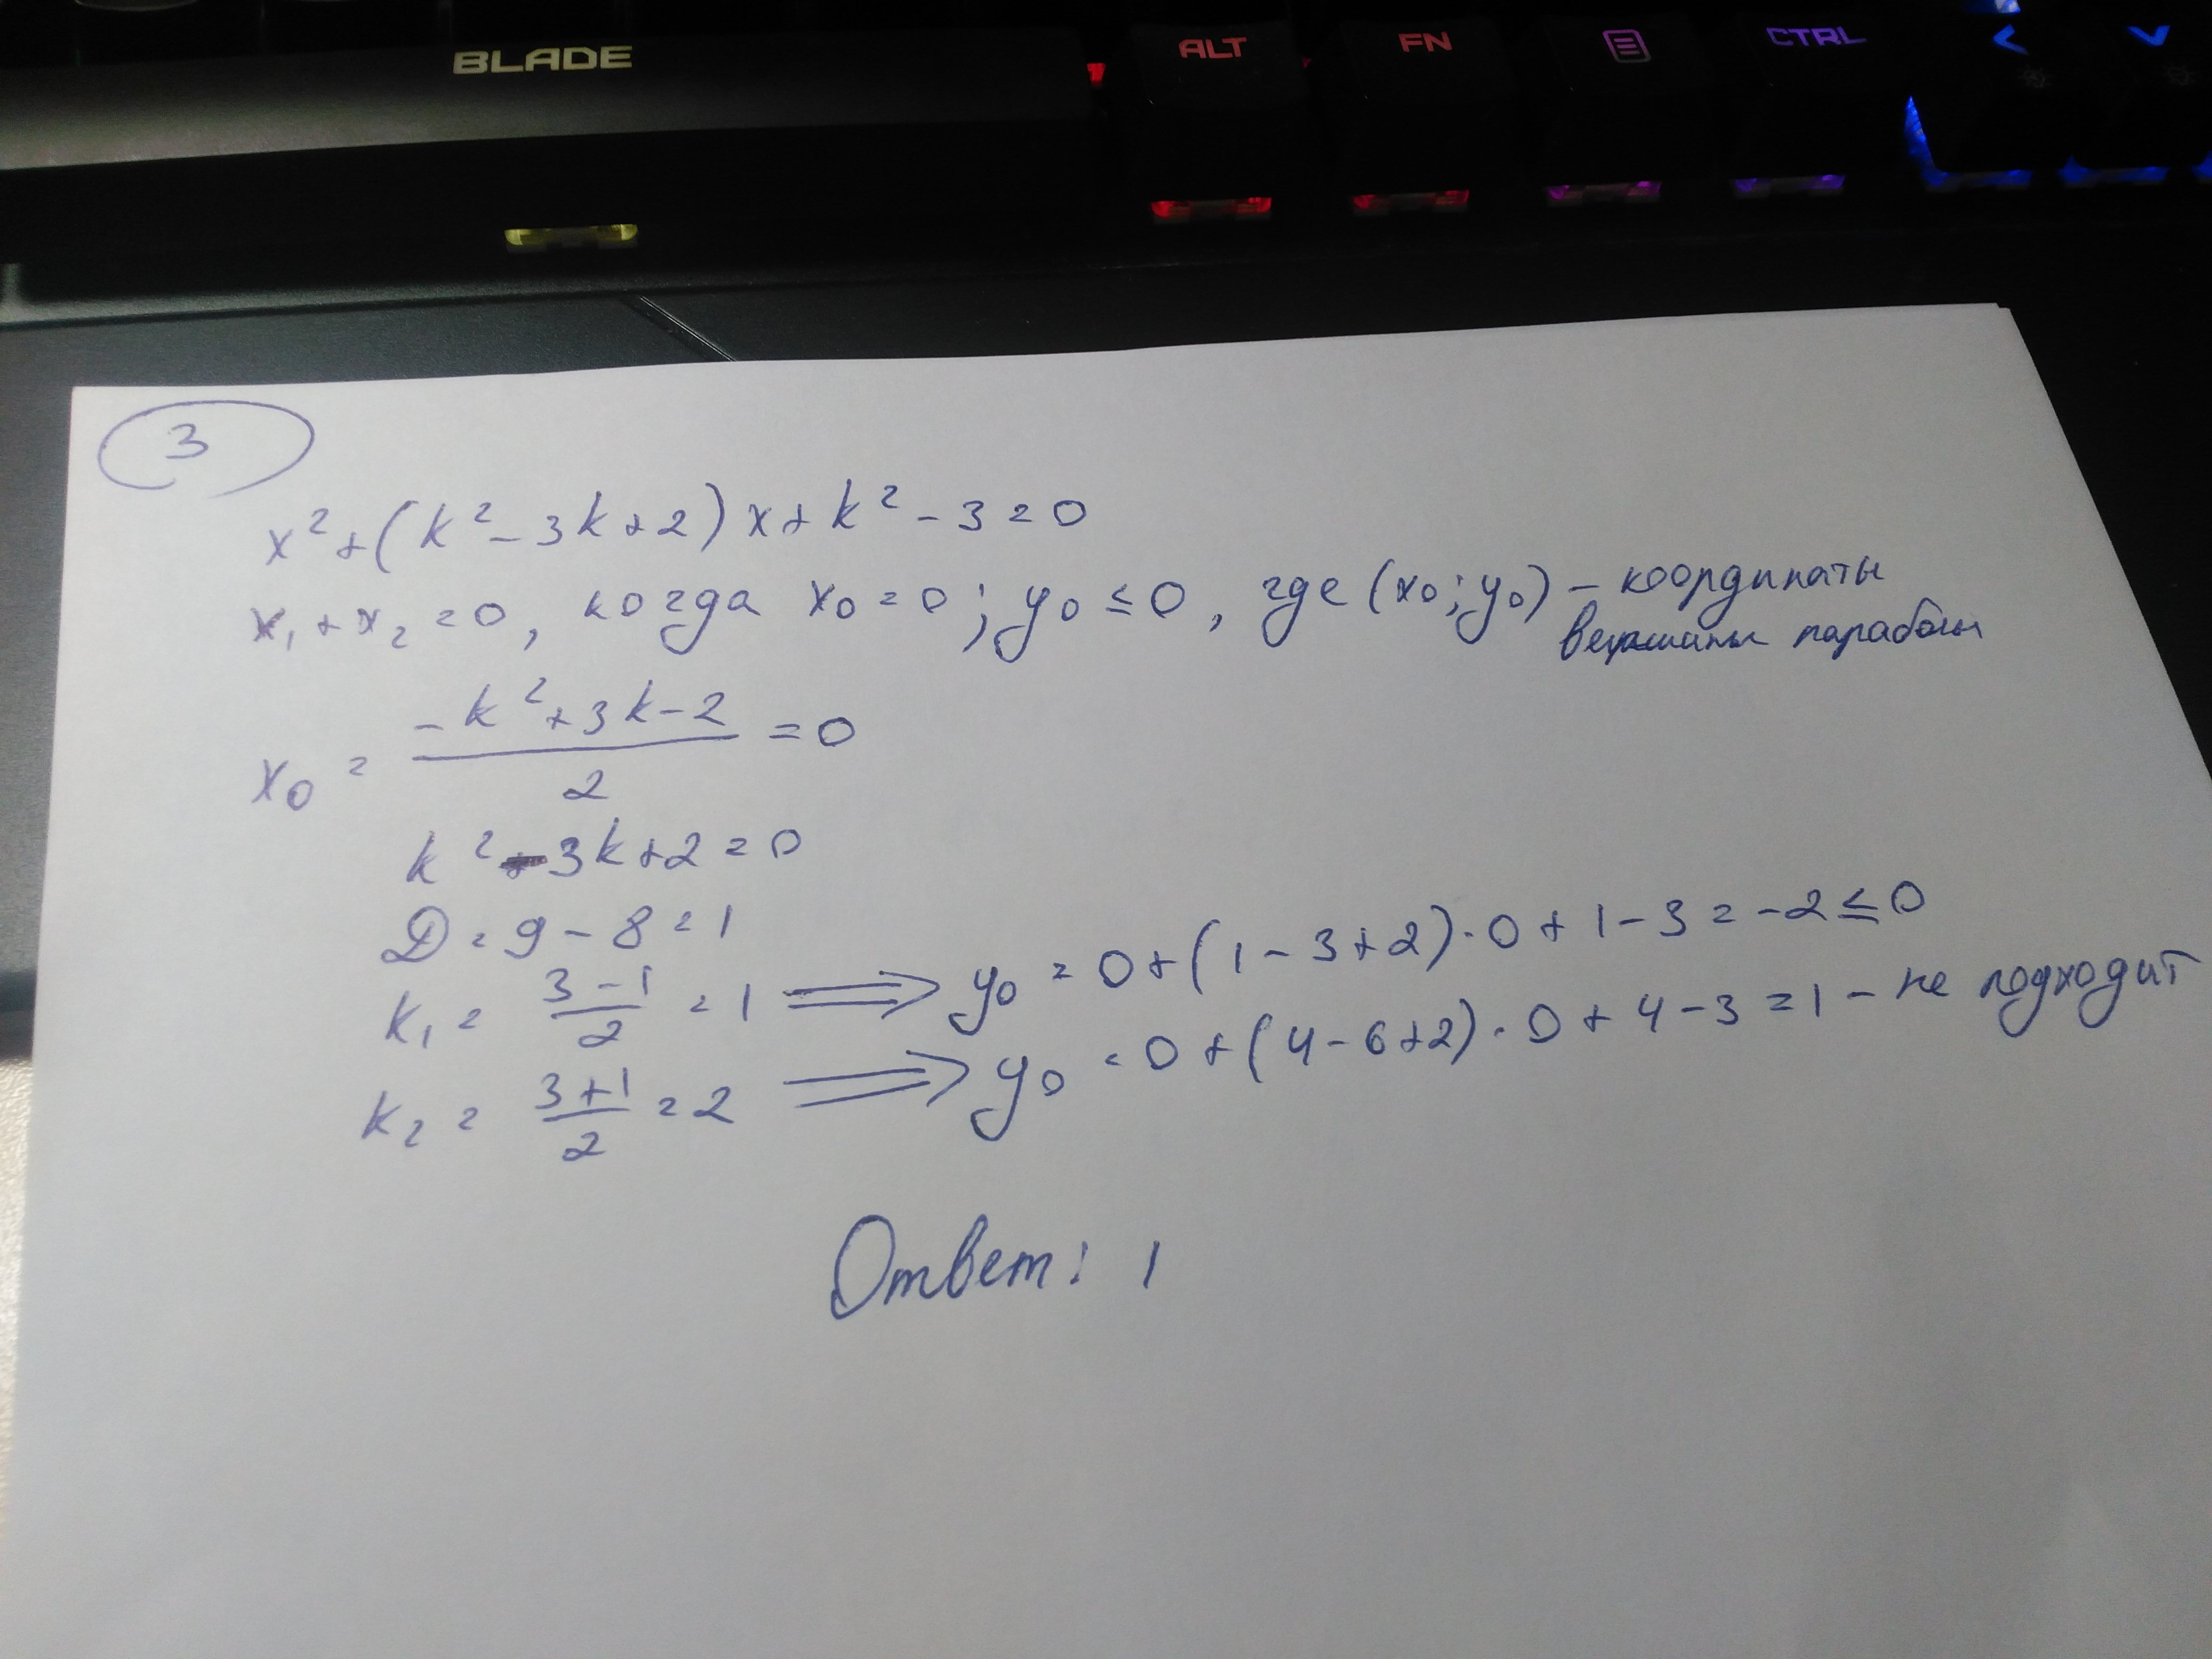 BLADE ALT FN CTRL
3
x² + (k² - 3k + 2) x + k² - 3 = 0
x₁ + x₂ = 0, когда x₀ = 0; y₀ ≤ 0, где (x₀; y₀) - координаты
вершины параболы
x₀ = (-k² + 3k - 2)/2 = 0
k² - 3k + 2 = 0
D = 9 - 8 = 1
k₁ = (3 - 1)/2 = 1 ⟹ y₀ = 0 + (1 - 3 + 2) · 0 + 1 - 3 = -2 ≤ 0
k₂ = (3 + 1)/2 = 2 ⟹ y₀ = 0 + (4 - 6 + 2) · 0 + 4 - 3 = 1 - не подходит
Ответ: 1